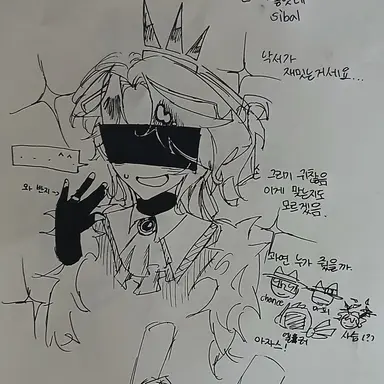 sibal
낙서가
재밌는거세요...
. . . . ^^
와 반지→
그리기 귀찮음
이게 맞는지도
모르겠음.
과연 누가 줬을까.
chance
마피
엘리엇
사슴(?)
아자스!